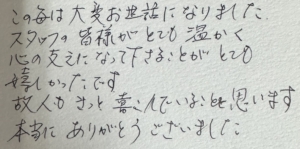 この每は大変お世話になりました
スタッフの皆様がとても温かく
心の支えになって下さることがとても
嬉しかったです
故人もきっと喜こんでいることと思います
本当にありがとうございました